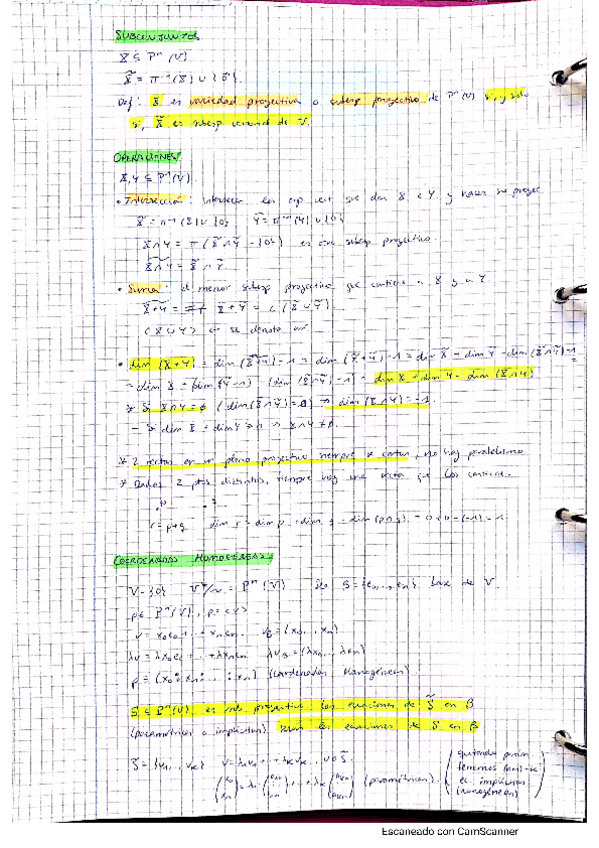 SUBCONJUNTOS
X ⊆ Pⁿ(V)
X̃ = π⁻¹(X) ∪ {0}.
Def: X es variedad proyectiva o subesp proyectivo de Pⁿ(V) si, y solo
si, X̃ es subesp vectorial de V.
OPERACIONES
X, Y ⊆ Pⁿ(V).
• Intersección: intersecar los esp vect que dan X e Y y hacer su proyec
X̃ = π⁻¹(X) ∪ {0} Ỹ = π⁻¹(Y) ∪ {0}
X∩Y = π(X̃∩Ỹ - {0}) es otro subesp proyectivo.
X̃∩Y = X̃ ∩ Ỹ
• Suma: el menor subesp proyectivo que contiene a X y a Y
X+Y = X̃ + Ỹ = L(X̃ ∪ Ỹ)
(X ∪ Y) se denota
• dim (X+Y) = dim (X̃+Y) - 1 = dim (X̃+Ỹ) - 1 = dim X̃ + dim Ỹ - dim (X̃∩Ỹ) - 1
= dim X + dim Y - dim (X∩Y)
* Si X∩Y = ∅ (dim (X̃∩Ỹ) = 0) ⇒ dim (X∩Y) = -1.
- Si dim X + dim Y ≥ n ⇒ X∩Y ≠ ∅.
* 2 rectas en un plano proyectivo siempre se cortan, no hay paralelismo
* Dados 2 ptos distintos, siempre hay una recta que los contiene.
p q
r = p+q dim r = dim p + dim q - dim (p∩q) = 0+0-(-1) = 1
COORDENADAS HOMOGENEAS
V-{0} V*/~ = Pⁿ(V) Sea B = {e₀,..., eₙ} base de V.
p ∈ Pⁿ(V), p = <v>
v = x₀e₀ + ... + xₙeₙ v_B = (x₀,..., xₙ)
λv = λx₀e₀ + ... + λxₙeₙ λv_B = (λx₀,..., λxₙ)
p = (x₀ : x₁ : ... : xₙ) (coordenadas homogéneas)
S ⊆ Pⁿ(V), es sub proyectivo las ecuaciones de S̃ en B
(paramétricas o implícitas) son las ecuaciones de S en B
S̃ = {v₁,..., vₖ} v = λ₁v₁ + ... + λₖvₖ, v ∈ S̃.
(paramétricas).
tenemos (n+1)-k
ec implícitas
(homogéneas)
Escaneado con CamScanner